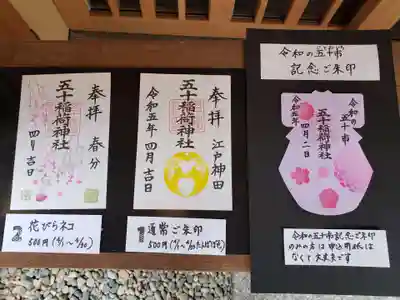 令和の五十市
記念ご朱印
令和の
五十市
五十稲荷神社
令和五年 四月二日
令和の五十市記念ご朱印
のみの方は申込用紙は
なくて大丈夫です
奉拝
江戸神田
五十稲荷神社
令和五年 四月吉日
1 通常ご朱印
500円
奉拝
春分
五十稲荷神社
四月吉日
2 花びらネコ
500円(4/1〜4/30)